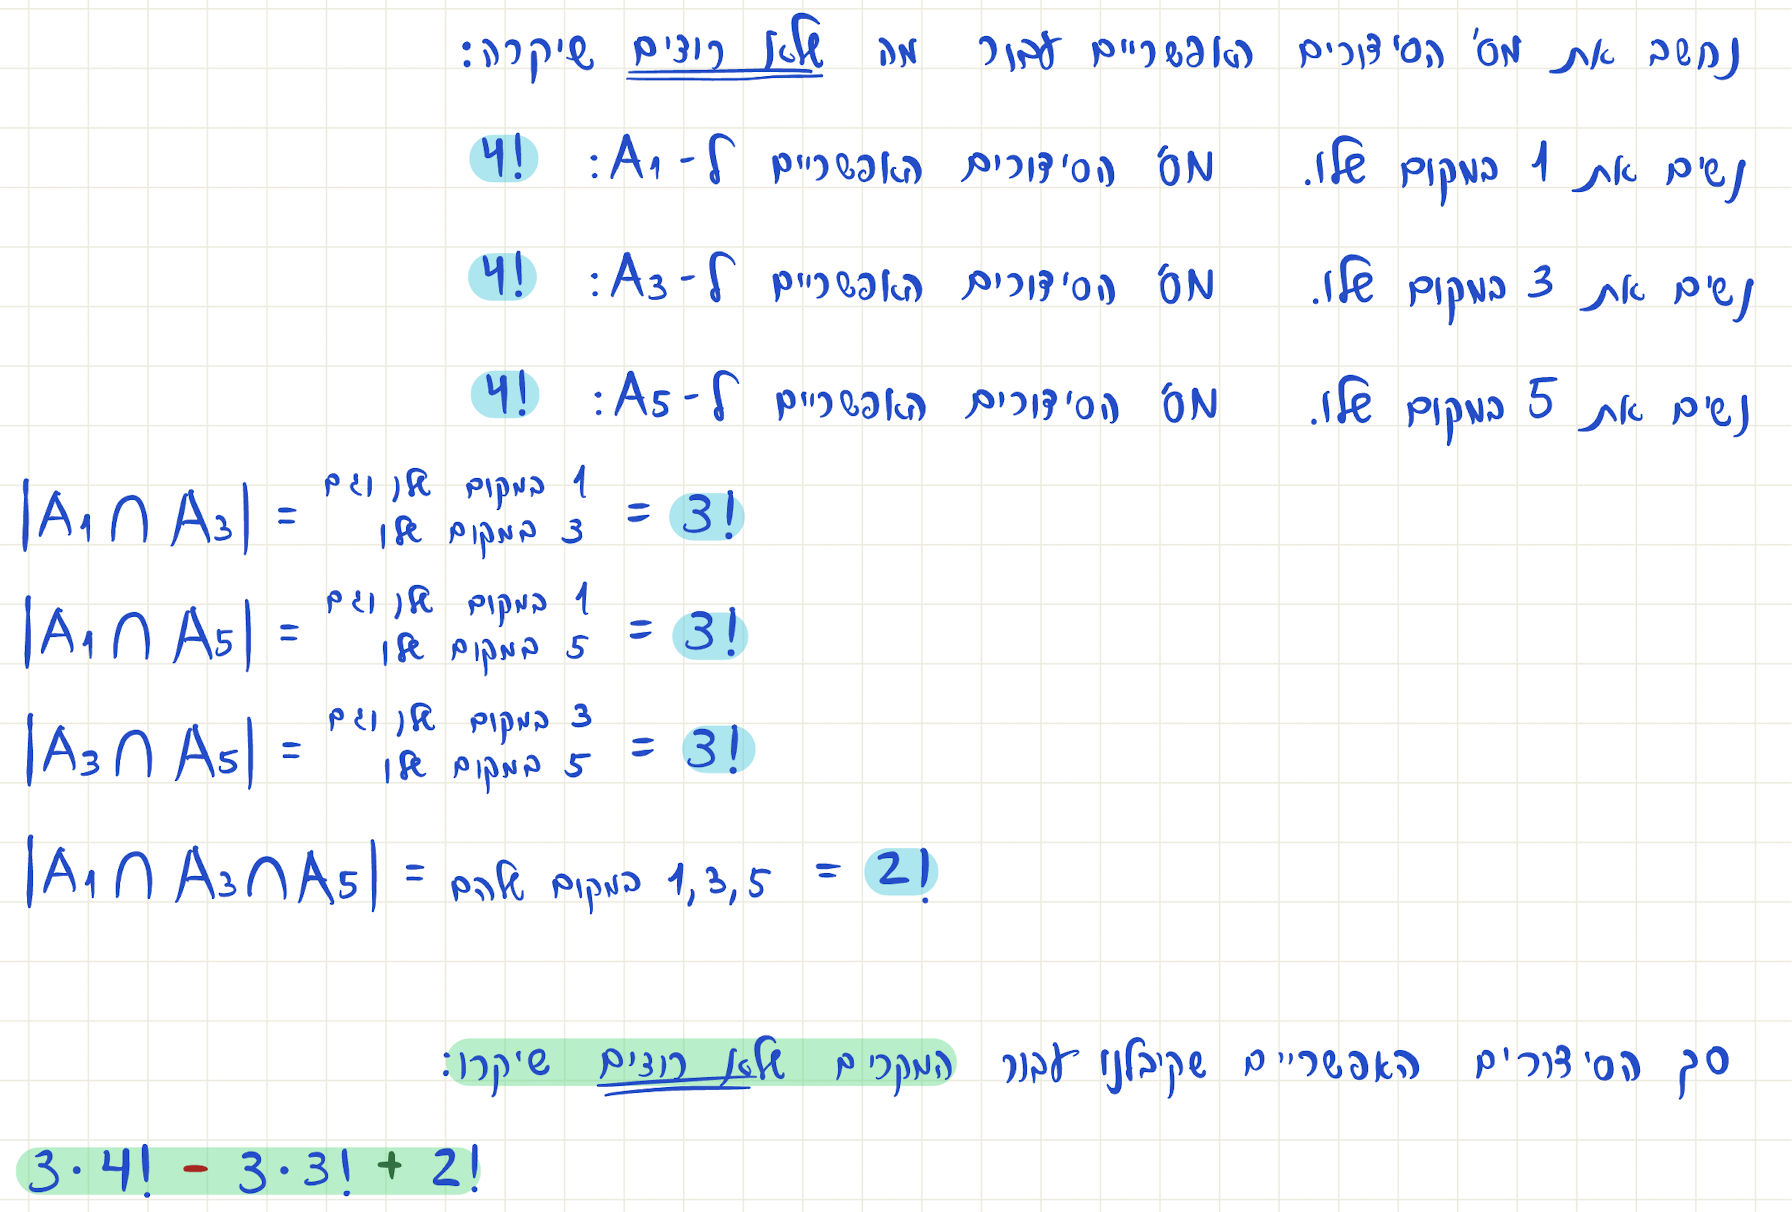 נחשב את מס' הסידורים האפשריים עבור מה שלא רוצים שיקרה:
נשים את 1 במקום שלו. מס' הסידורים האפשריים ל-A1: 4!
נשים את 3 במקום שלו. מס' הסידורים האפשריים ל-A3: 4!
נשים את 5 במקום שלו. מס' הסידורים האפשריים ל-A5: 4!
|A1 ∩ A3| = 1 במקום שלו וגם 3 במקום שלו = 3!
|A1 ∩ A5| = 1 במקום שלו וגם 5 במקום שלו = 3!
|A3 ∩ A5| = 3 במקום שלו וגם 5 במקום שלו = 3!
|A1 ∩ A3 ∩ A5| = 1,3,5 במקום שלהם = 2!
סך הסידורים האפשריים שקיבלנו עבור המקרים שלא רוצים שיקרו:
3·4! - 3·3! + 2!